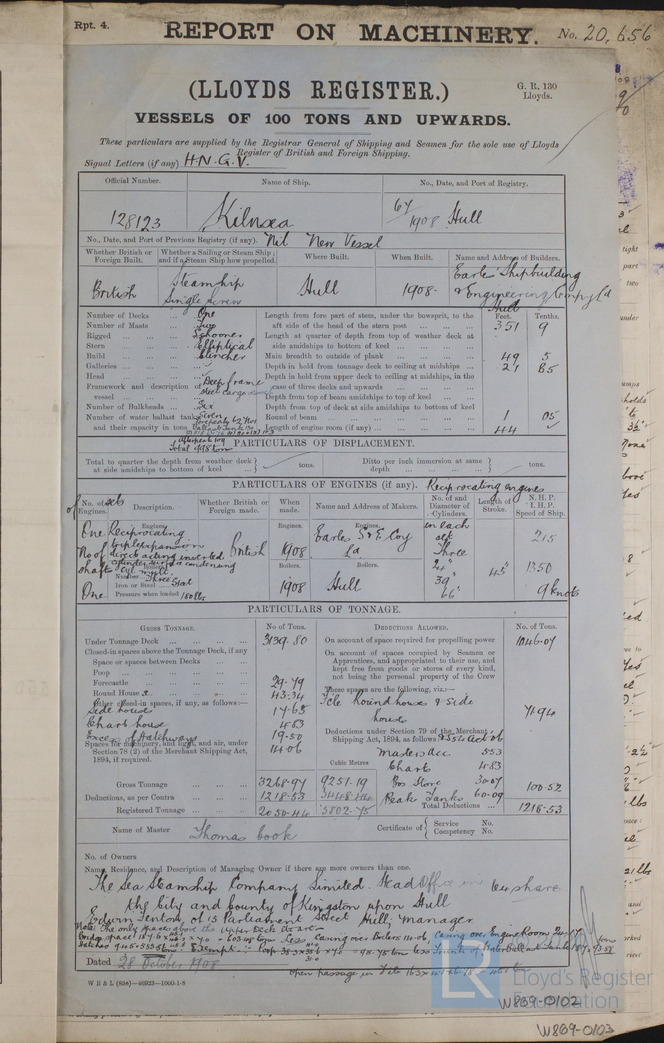 Rpt. 4.
REPORT ON MACHINERY. No. 20,656
(LLOYDS REGISTER.)
G. R. 130
Lloyds.
VESSELS OF 100 TONS AND UPWARDS.
These particulars are supplied by the Registrar General of Shipping and Seamen for the sole use of Lloyds
Register of British and Foreign Shipping.
Signal Letters (if any) H.N.G.V.
Official Number. Name of Ship. No., Date, and Port of Registry.
128123 Kilnsea 64/1908 Hull
No., Date, and Port of Previous Registry (if any). Nil New Vessel
Whether British or Foreign Built. Whether a Sailing or Steam Ship; and if a Steam Ship how propelled. Where Built. When Built. Name and Address of Builders.
British Steamship Single Screw Hull 1908 Earles Shipbuilding & Engineering Compy Ld Hull
Number of Decks One
Number of Masts Two
Rigged Schooner
Stern Elliptical
Build Clencher
Galleries
Head
Framework and description of vessel Deep frame Steel Cargo
Number of Bulkheads Six
Number of water ballast tanks Seven
and their capacity in tons
Feet. Tenths.
Length from fore part of stem, under the bowsprit, to the aft side of the head of the stern post 351 9
Length at quarter of depth from top of weather deck at side amidships to bottom of keel
Main breadth to outside of plank 49 5
Depth in hold from tonnage deck to ceiling at midships 21 85
Depth in hold from upper deck to ceiling at midships, in the case of three decks and upwards
Depth from top of beam amidships to top of keel
Depth from top of deck at side amidships to bottom of keel
Round of beam 1 05
Length of engine room (if any) 44
PARTICULARS OF DISPLACEMENT.
Total to quarter the depth from weather deck at side amidships to bottom of keel tons.
Ditto per inch immersion at same depth tons.
PARTICULARS OF ENGINES (if any). Reciprocating engines
No. of sets of Engines. Description. Whether British or Foreign made. When made. Name and Address of Makers. No. of and Diameter of Cylinders. Length of Stroke. N.H.P. I.H.P. Speed of Ship.
Engines. Engines. Engines.
One Reciprocating triple expansion direct acting inverted British 1908 Earles S & E Coy Ld in each set Three 24" 39" 66" 45" 215 1350 9 knots
No of Shafts One
Boilers. Boilers. Boilers.
Number Three
Iron or Steel Steel
Pressure when loaded 180 lbs
1908 Hull
PARTICULARS OF TONNAGE.
GROSS TONNAGE. No of Tons.
Under Tonnage Deck 3139.80
Closed-in spaces above the Tonnage Deck, if any
Space or spaces between Decks
Poop
Forecastle 29.79
Round House 43.34
Other closed-in spaces, if any, as follows:—
Side houses 17.65
Chart house 4.83
Excess of Hatchways 19.50
Spaces for machinery, and light, and air, under Section 78 (2) of the Merchant Shipping Act, 1894, if required. 14.06
Gross Tonnage 3268.97 9251.19
Deductions, as per Contra 1218.53 3448.44
Registered Tonnage 2050.44 5802.75
Cubic Metres
DEDUCTIONS ALLOWED. No. of Tons.
On account of space required for propelling power 1046.07
On account of spaces occupied by Seamen or Apprentices, and appropriated to their use, and kept free from goods or stores of every kind, not being the personal property of the Crew
These spaces are the following, viz.:—
Fcle Round house & side houses 71.94
Deductions under Section 79 of the Merchant Shipping Act, 1894, as follows
Masters acc 5.53
Chart 4.83
Bos Store 30.07
Peak Tanks 60.09
100.52
Total Deductions 1218.53
Name of Master Thomas Cook
Certificate of Service No. Competency No.
No. of Owners
Name, Residence, and Description of Managing Owner if there are more owners than one.
The Sea Steamship Company Limited. Head Office in
the City and County of Kingston upon Hull
Edwin Fenton, of 13 Parliament Street Hull, Manager
Note: The only spaces above the Upper Deck
Dated 28 October 1908
W B & L (838)—40923—1000-1-8
LR
Lloyd's Register
Foundation
W869-0102
W869-0103